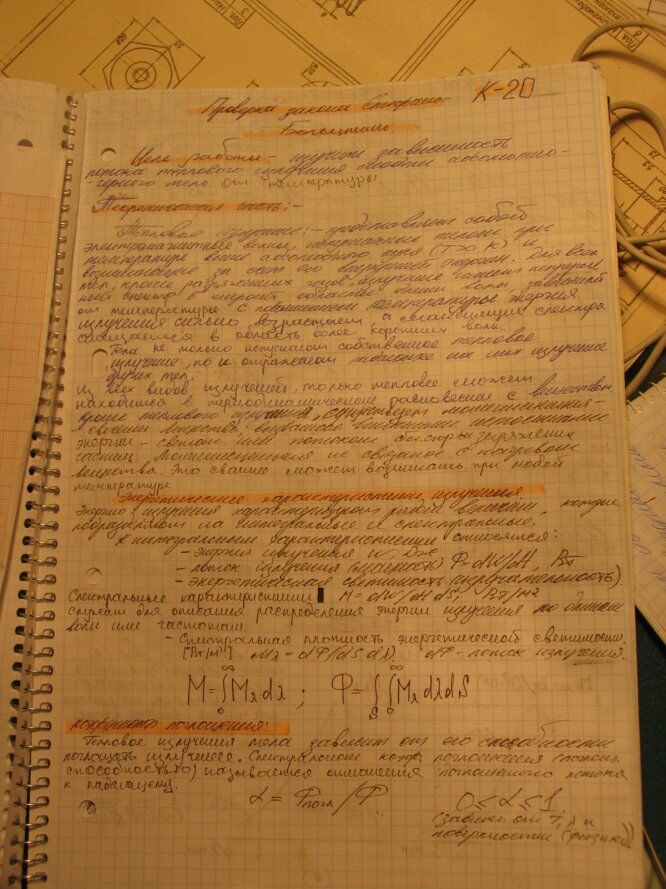 К-20
Проверка закона Стефана-
Больцмана
Цель работы: изучить зависимость
потока теплового излучения абсолютно-
черного тела от температуры.
Теоретическая часть:-
Тепловое излучение:- представляет собой
электромагнитные волны, испускаемые телами при
температуре выше абсолютного нуля (T > K) и
возникающее за счет его внутренней энергии. Для всех
тел, кроме разряженных газов, излучение имеет непрерыв
ный спектр в широкой области длин волн, зависящий
от температуры. С повышением температуры энергия
излучения сильно возрастает, а спектра
смещается в область более коротких волн.
Тела не только испускают собственное тепловое
излучение, но и отражают падающее на них излучение
других тел.
Из всех видов излучений, только тепловое может
находится в термодинамическом равновесии с веществом
Кроме теплового излучения, существует люминесценция-
свечение вещества, вызванное внешними источниками
энергии - светом или потоком быстрых заряженых
частиц. Люминесценция не связаное с нагревом
вещества. Это свечение может возникать при любой
температуре
Энергетические характеристики излучения
Энергию излучения характеризуют рядом величин, которые
подразделяют на интегральные и спектральные.
К интегральным характеристикам относятся:
- энергия излучения W, Дж
- поток излучения (мощность) Ф=dW/dt, Вт
- энергетическая светимость (излучательность)
Спектральные характеристики M = dW/dt dS, Вт/м²
служат для описания распределения энергии излучения по длинам
волн или частотам.
- Спектральная плотность энергетической светимости
[Вт/м³] Mλ = dФ/(dS dλ) dФ - поток излучения.
M = ∫₀^∞ Mλ dλ ; Ф = ∫_S ∫₀^∞ Mλ dλ dS
поглощения:
Тепловое излучения тела зависит от его способности
поглощать излучение. Спектральным поглощения
способностью) называется отношения поглощаемого потока
к падающему.
α = Фпогл/Ф. 0 ≤ α ≤ 1
(зависит от T, λ и
поверхности (физики))